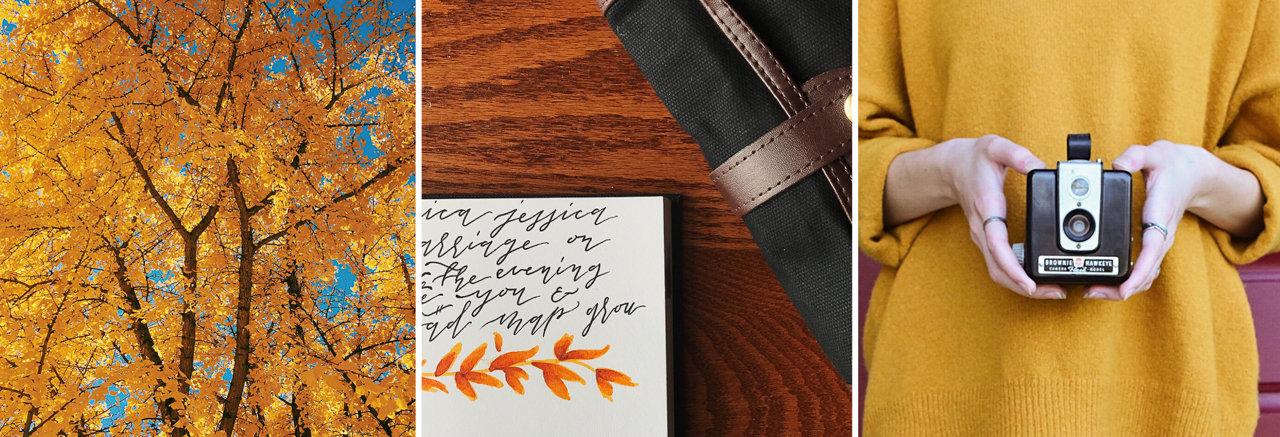 ica jessica
arriage on
the evening
you &
ad map grow
BROWNIE HAWKEYE
CAMERA Flash MODEL